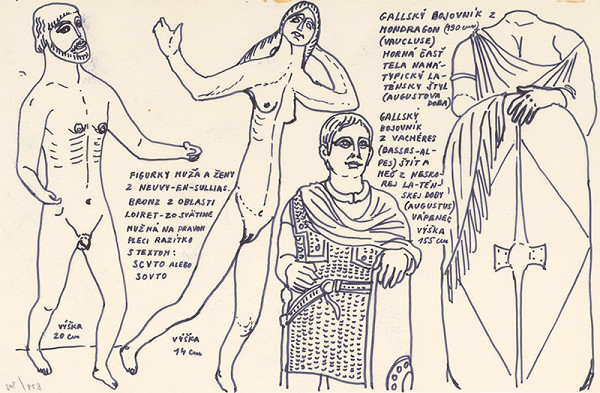 FIGURKY MUŽA A ŽENY
Z NEUVY-EN-SULLIAS.
BRONZ Z OBLASTI
LOIRET-ZO SVÄTINE
MUŽ MÁ NA PRAVOM
PLECI RAZÍTKO
S TEXTOM:
SCVTO ALEBO
SOVTO
VÝŠKA
20 cm
VÝŠKA
14 cm
GALLSKÝ BOJOVNÍK Z
MONDRAGON (190 cm)
(VAUCLUSE)
HORNÁ ČASŤ
TELA NAHÁ-
TYPICKÝ LA-
TÉNSKY ŠTÝL
(AUGUSTOVA
DOBA)
GALLSKÝ
BOJOVNÍK
Z VACHÉRES
(BASSES-AL-
PES) ŠTÍT A
MEČ Z NESKO-
REJ LA-TÉN-
SKEJ DOBY
(AUGUSTUS)
VÁPENEC
VÝŠKA
155 cm